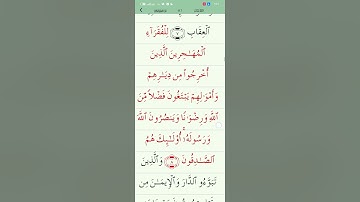 ٱلْعِقَابِ ٧ لِلْفُقَرَآءِ
ٱلْمُهَٰجِرِينَ ٱلَّذِينَ
أُخْرِجُوا۟ مِن دِيَٰرِهِمْ
وَأَمْوَٰلِهِمْ يَبْتَغُونَ فَضْلًا مِّنَ
ٱللَّهِ وَرِضْوَٰنًا وَيَنصُرُونَ ٱللَّهَ
وَرَسُولَهُۥٓ ۚ أُو۟لَٰٓئِكَ هُمُ
ٱلصَّٰدِقُونَ ٨ وَٱلَّذِينَ
تَبَوَّءُو ٱلدَّارَ وَٱلْإِيمَٰنَ مِن